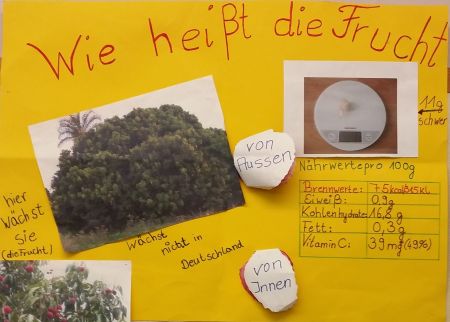 Wie heißt die Frucht
11g
schwer
von
Aussen
hier
wächst
sie
(die Frucht)
wächst
nicht in
Deutschland
von
Innen
Nährwerte pro 100g
Brennwerte:
Eiweiß: 0,9g
Kohlenhydrate: 16,8g
Fett: 0,3g
Vitamin C: 39mg (49%)